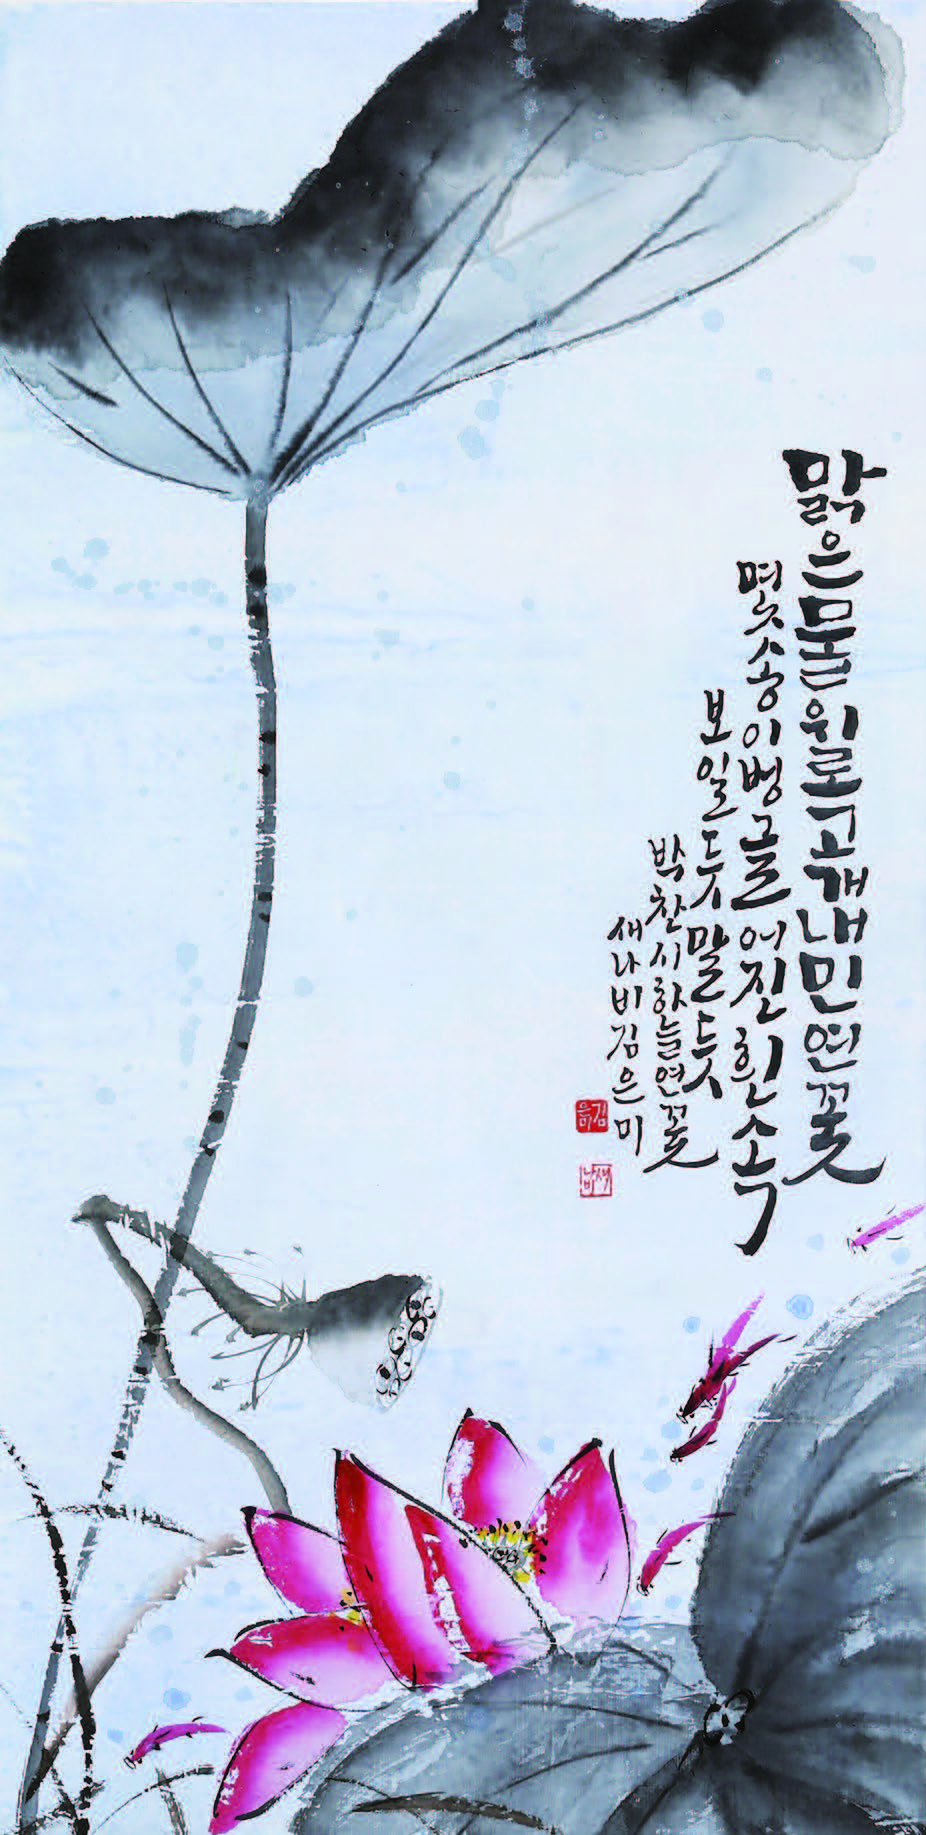 맑은물위로고개내민연꽃
몇송이벙글어진흰속
보일듯말듯
박찬시하늘연꽃
새나비김은미